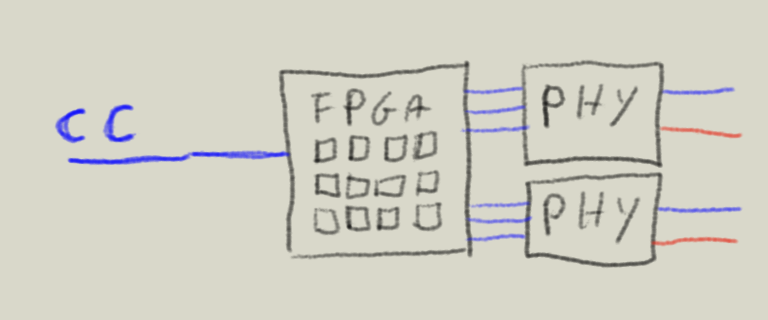 CC
FPGA
PHY
PHY